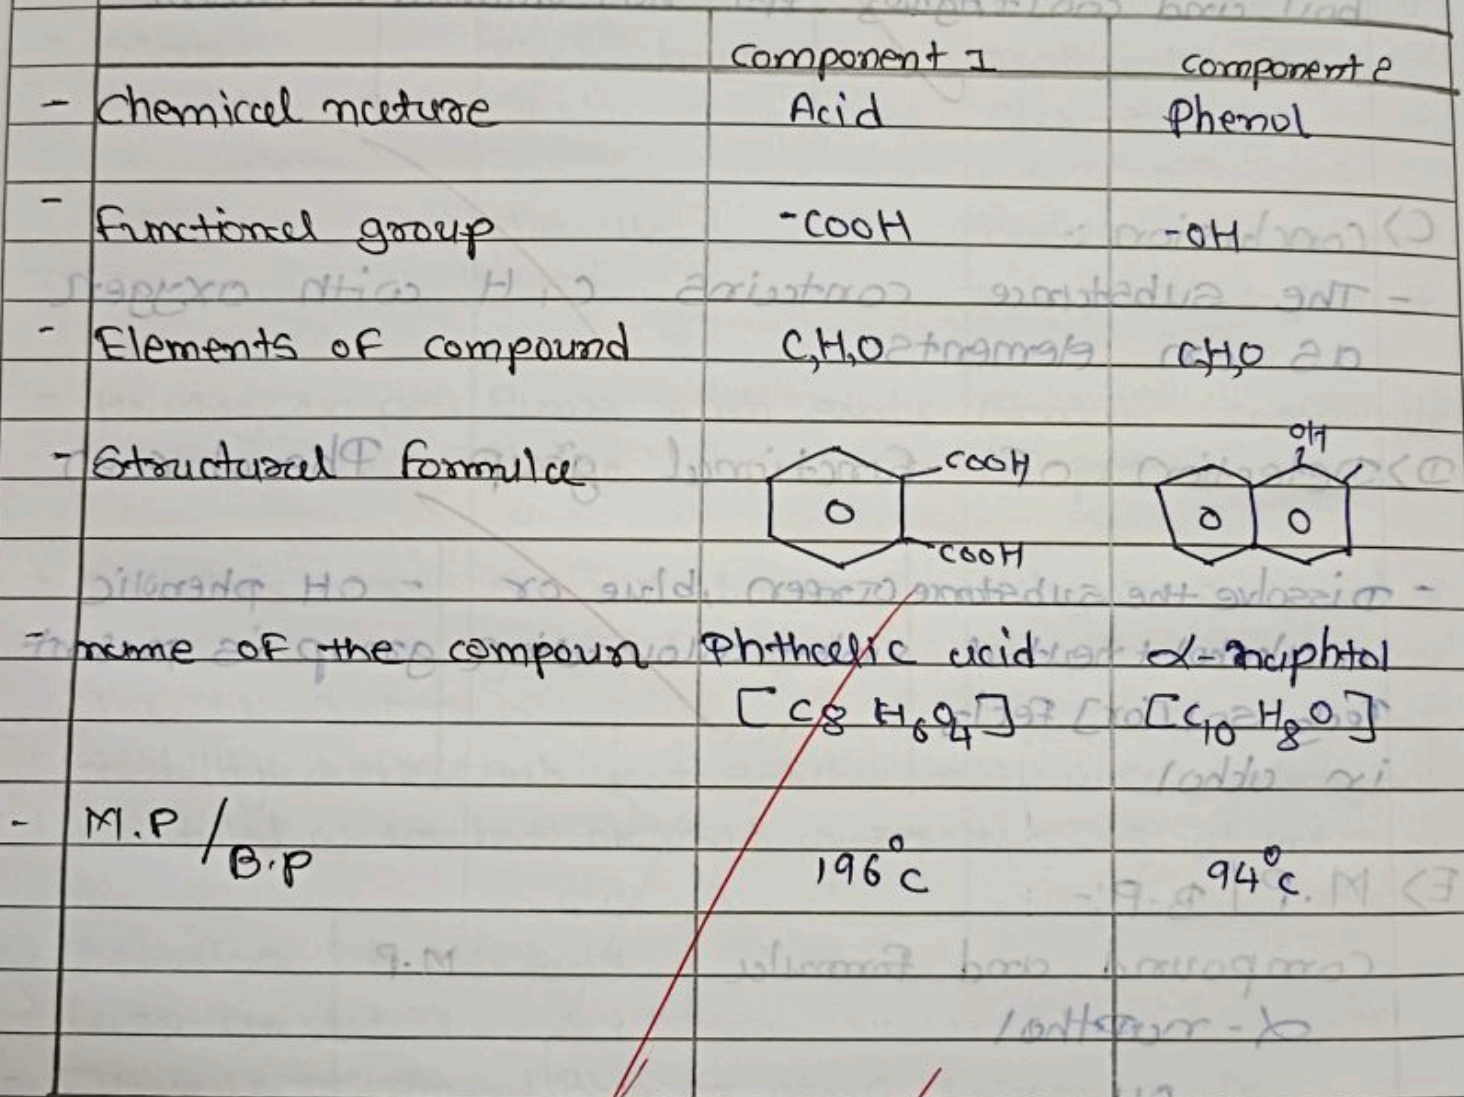 Component 1 component 2
- Chemical nature Acid Phenol
- Functional group -COOH -OH
- Elements of compound C,H,O C,H,O
- Structural formula
COOH
COOH
OH
- name of the compoun Phthalic acid α-naphtol
[C8 H6O4] [C10 H8O]
- M.P/B.P 196°C 94°C